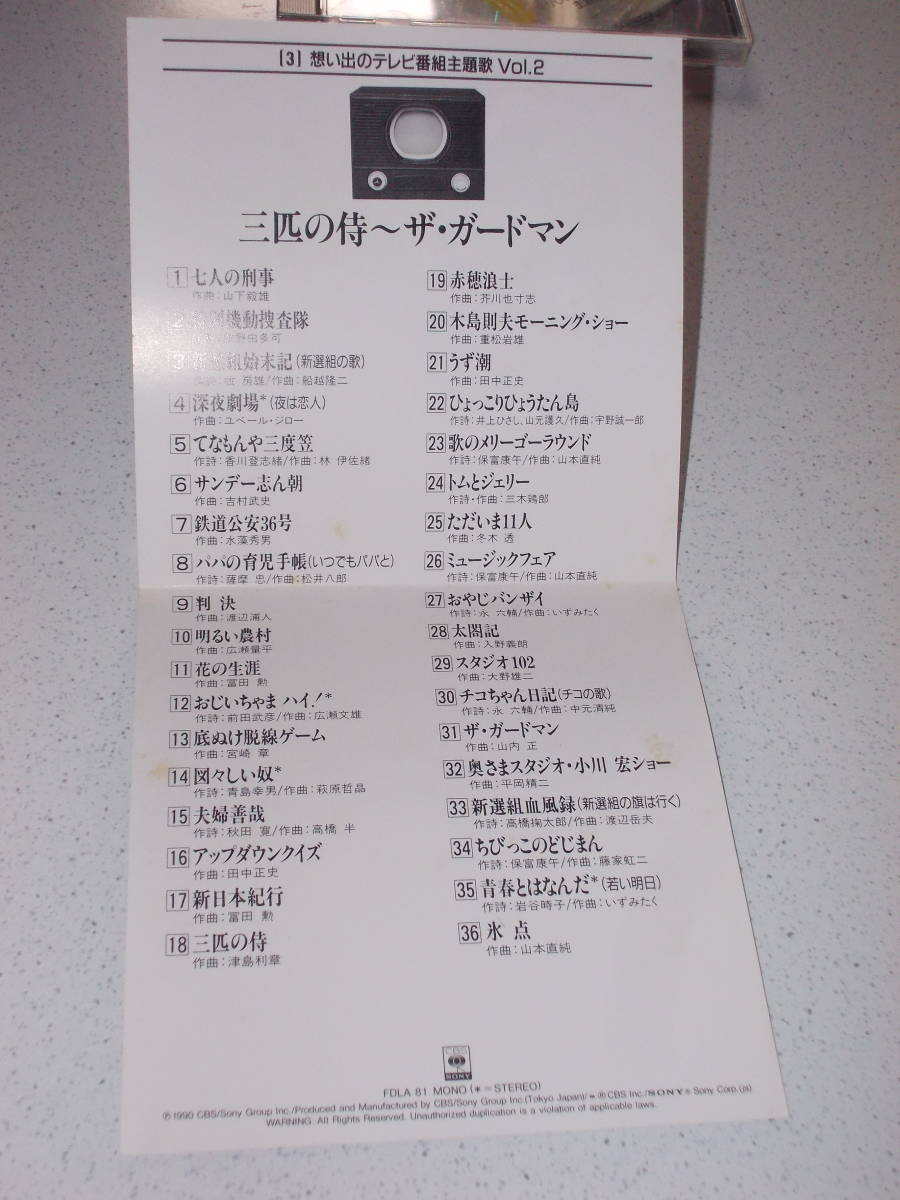 [3] 想い出のテレビ番組主題歌 Vol.2
三匹の侍～ザ・ガードマン
1 七人の刑事
作曲：山下毅雄
2 機動捜査隊
3 組始末記(新選組の歌)
房雄/作曲：船越隆二
4 深夜劇場*(夜は恋人)
作曲：ユベール・ジロー
5 てなもんや三度笠
作詩：香川登志緒/作曲：林 伊佐緒
6 サンデー志ん朝
作曲：吉村武史
7 鉄道公安36号
作曲：水藻秀男
8 パパの育児手帳(いつでもパパと)
作詩：薩摩 忠/作曲：松井八郎
9 判 決
作曲：渡辺浦人
10 明るい農村
作曲：広瀬量平
11 花の生涯
作曲：冨田 勲
12 おじいちゃま ハイ!*
作詩：前田武彦/作曲：広瀬文雄
13 底ぬけ脱線ゲーム
作曲：宮崎 章
14 図々しい奴*
作詩：青島幸男/作曲：萩原哲晶
15 夫婦善哉
作詩：秋田 寛/作曲：高橋 半
16 アップダウンクイズ
作曲：田中正史
17 新日本紀行
作曲：冨田 勲
18 三匹の侍
作曲：津島利章
19 赤穂浪士
作曲：芥川也寸志
20 木島則夫モーニング・ショー
作曲：重松岩雄
21 うず潮
作曲：田中正史
22 ひょっこりひょうたん島
作詩：井上ひさし、山元護久/作曲：宇野誠一郎
23 歌のメリーゴーラウンド
作詩：保富康午/作曲：山本直純
24 トムとジェリー
作詩・作曲：三木鶏郎
25 ただいま11人
作曲：冬木 透
26 ミュージックフェア
作詩：保富康午/作曲：山本直純
27 おやじバンザイ
作詩：永 六輔/作曲：いずみたく
28 太閤記
作曲：入野義朗
29 スタジオ102
作曲：大野雄二
30 チコちゃん日記(チコの歌)
作詩：永 六輔/作曲：中元清純
31 ザ・ガードマン
作曲：山内 正
32 奥さまスタジオ・小川 宏ショー
作曲：平岡精二
33 新選組血風録(新選組の旗は行く)
作詩：高橋掬太郎/作曲：渡辺岳夫
34 ちびっこのどじまん
作詩：保富康午/作曲：藤家虹二
35 青春とはなんだ*(若い明日)
作詩：岩谷時子/作曲：いずみたく
36 氷 点
作曲：山本直純
CBS
SONY
FDLA 81 MONO (*=STEREO)
℗1990 CBS/Sony Group Inc./Produced and Manufactured by CBS/Sony Group Inc.(Tokyo Japan)/ ® CBS Inc./SONY® Sony Corp.
WARNING: All Rights Reserved. Unauthorized duplication is a violation of applicable laws.